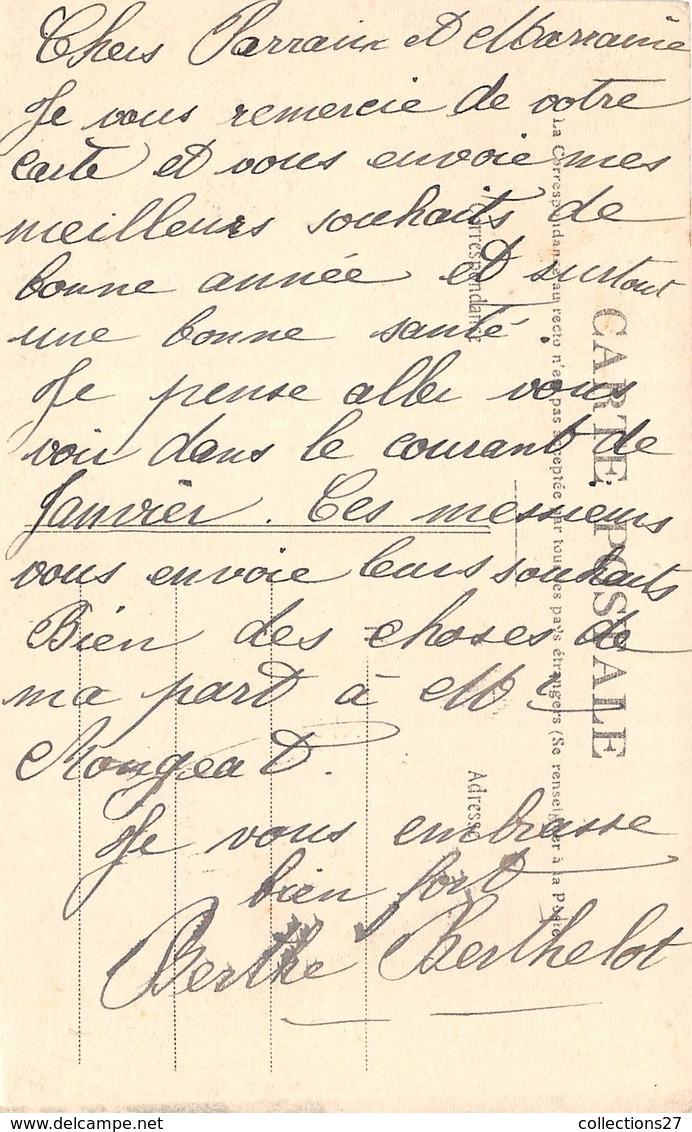 Chers Parrain et Marraine
Je vous remercie de votre
carte et vous envoie mes
meilleurs souhaits de
bonne année et surtout
une bonne santé.
Je pense aller vous
voir dans le courant de
Janvier. Ces messieurs
vous envoie leurs souhaits
Bien des choses de
ma part à
Rongeat.
Je vous embrasse
bien fort
Berthe Berthelot
CARTE POSTALE
La Correspondance au recto n'est pas acceptée par tous les pays étrangers (Se renseigner à la Poste)
Correspondance
Adresse
collections27